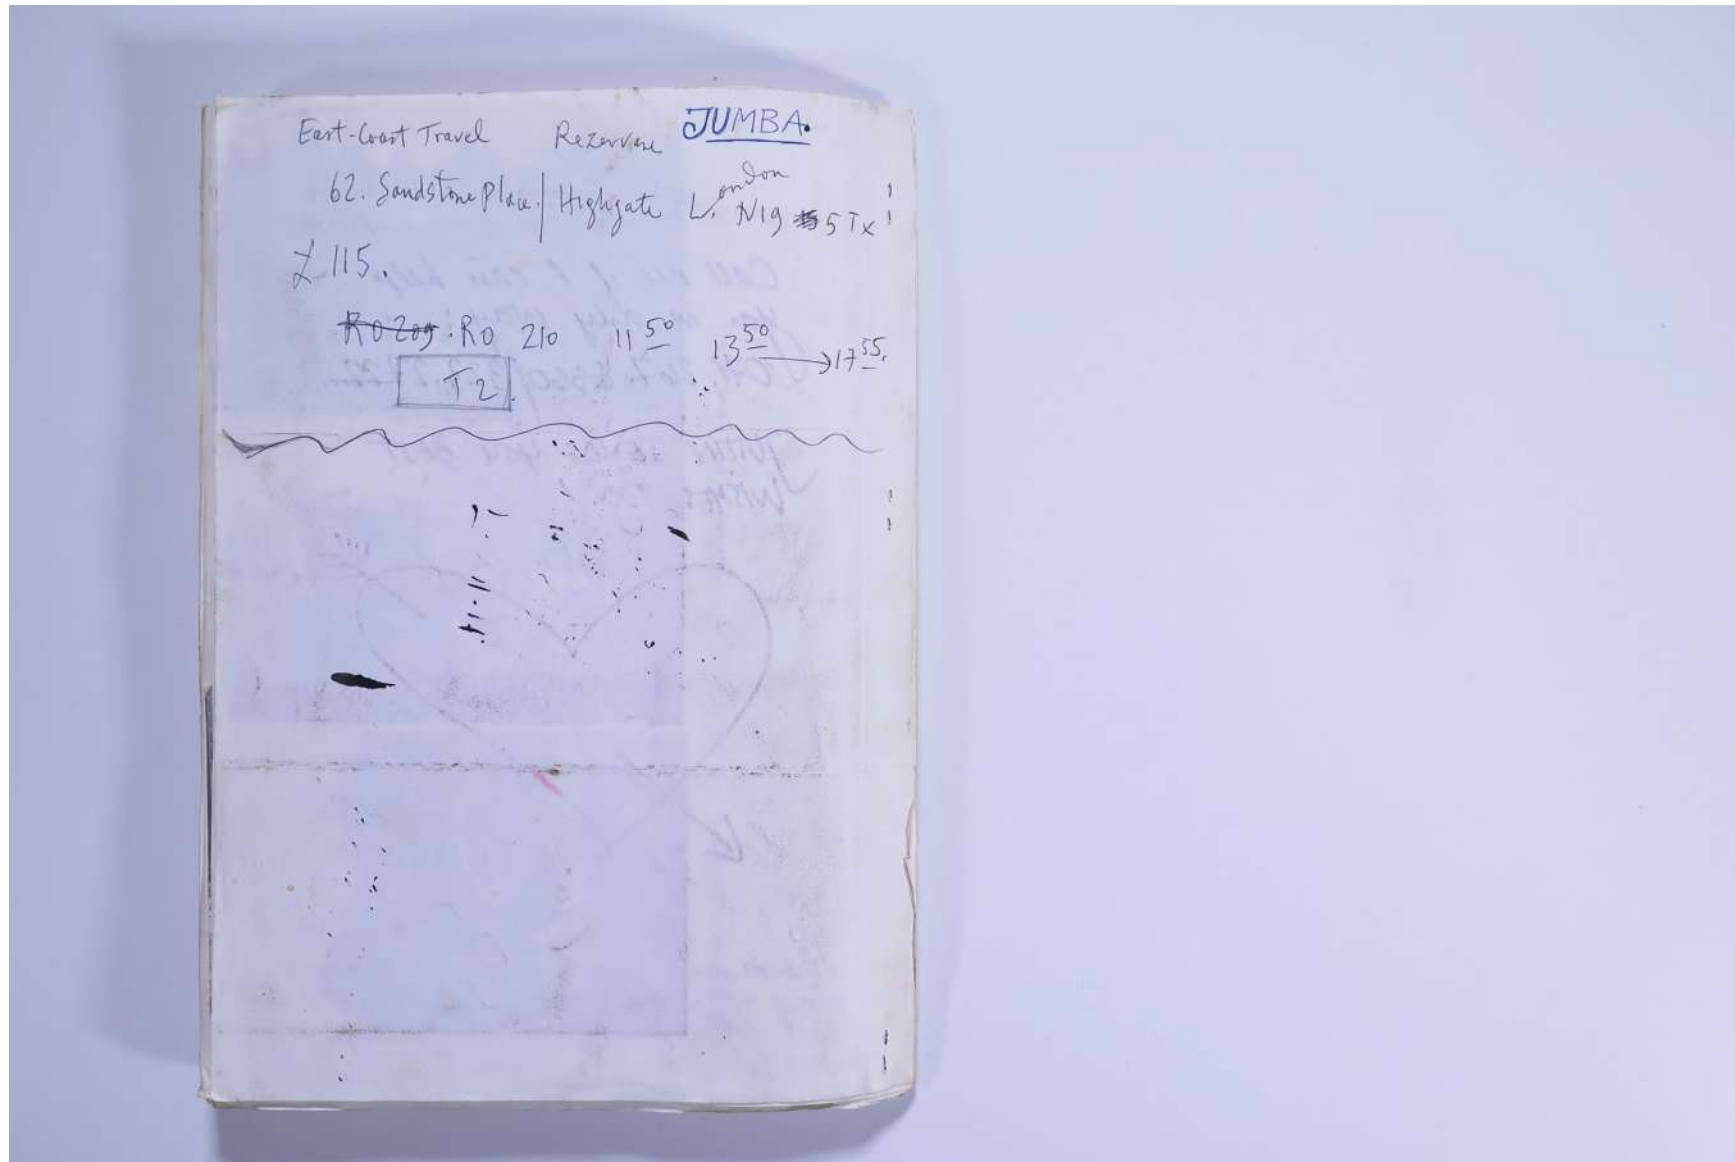 East-Coast Travel Rezervare JUMBA.
62. Sandstone Place. / Highgate L. ondon N19 5 Tx
£ 115.
R0209. RO 210 11 50 13 50 → 17 55.
T2